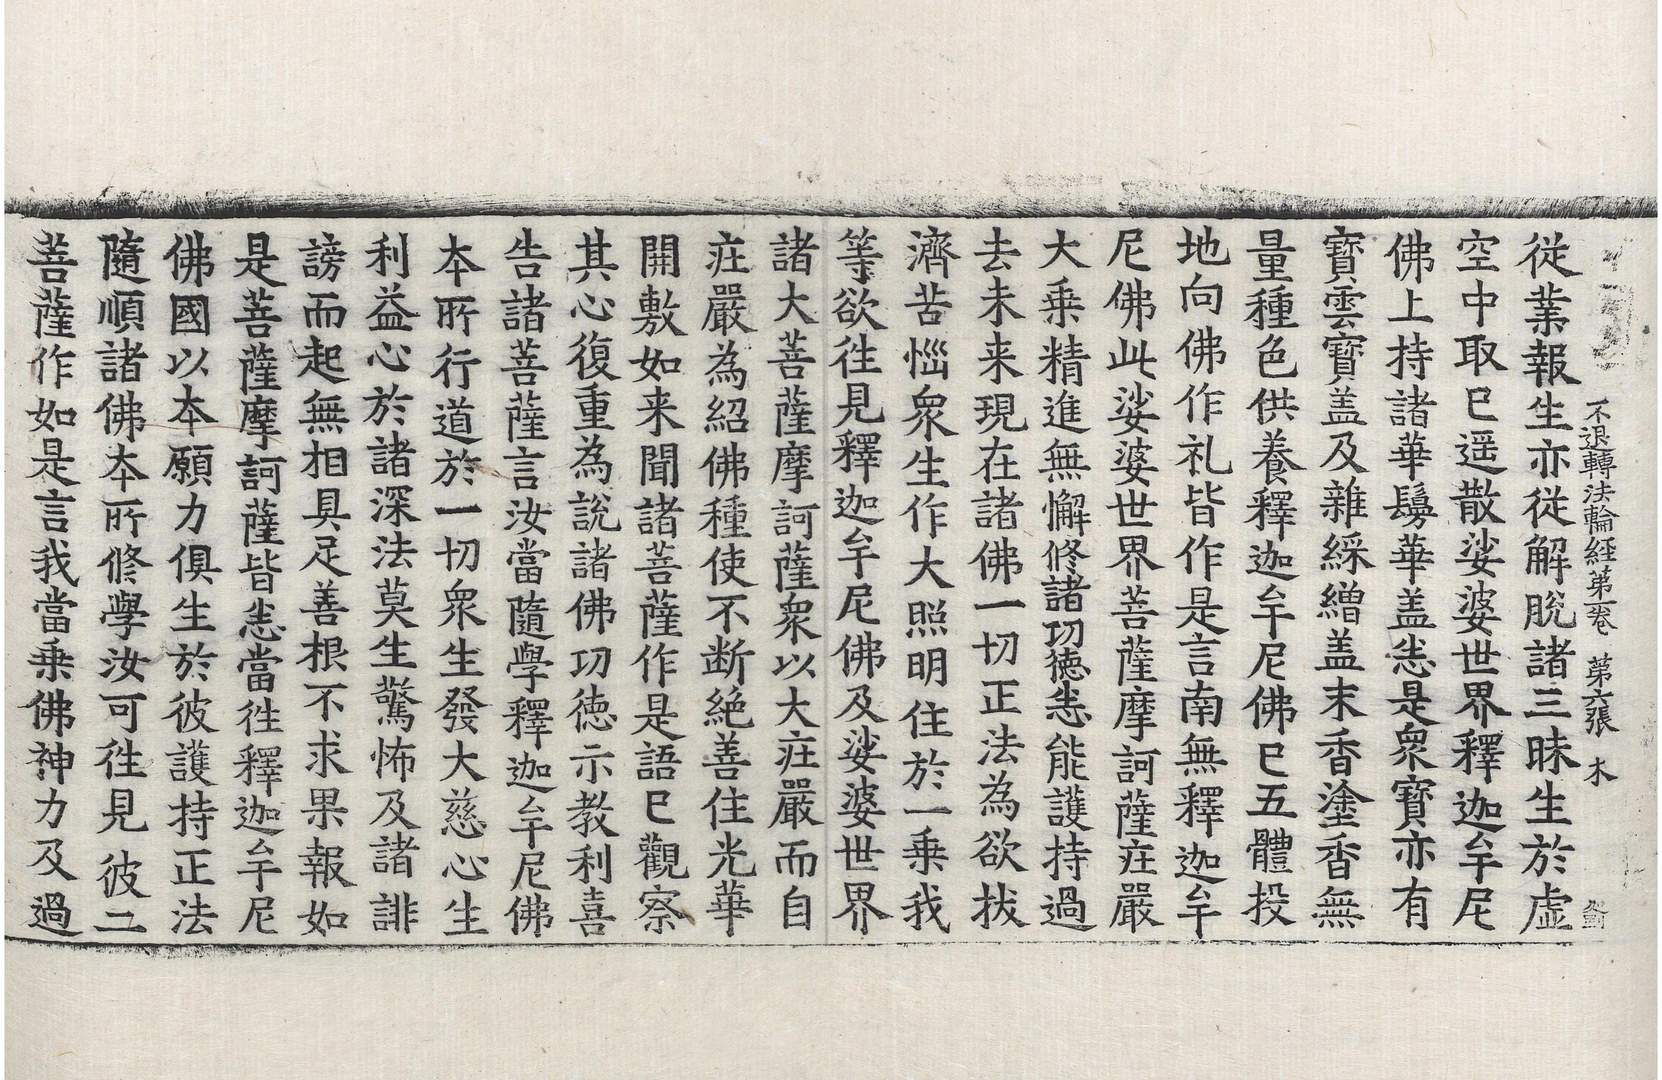 不退轉法輪經第一卷　第六張　木
從業報生亦從解脫諸三昧生於虛
空中取已遥散娑婆世界釋迦牟尼
佛上持諸華鬘華盖悉是衆寶亦有
寶雲寶盖及雜綵繒盖末香塗香無
量種色供養釋迦牟尼佛已五體投
地向佛作礼皆作是言南無釋迦牟
尼佛此娑婆世界菩薩摩訶薩莊嚴
大乗精進無懈修諸功德悉能護持過
去未来現在諸佛一切正法為欲拔
濟苦惱衆生作大照明住於一乗我
等欲往見釋迦牟尼佛及娑婆世界
諸大菩薩摩訶薩衆以大莊嚴而自
莊嚴為紹佛種使不断絶善住光華
開敷如来聞諸菩薩作是語已觀察
其心復重為說諸佛功德示教利喜
告諸菩薩言汝當隨學釋迦牟尼佛
本所行道於一切衆生發大慈心生
利益心於諸深法莫生驚怖及諸誹
謗而起無相具足善根不求果報如
是菩薩摩訶薩皆悉當往釋迦牟尼
佛國以本願力俱生於彼護持正法
隨順諸佛本所修學汝可往見彼二
菩薩作如是言我當乗佛神力及過